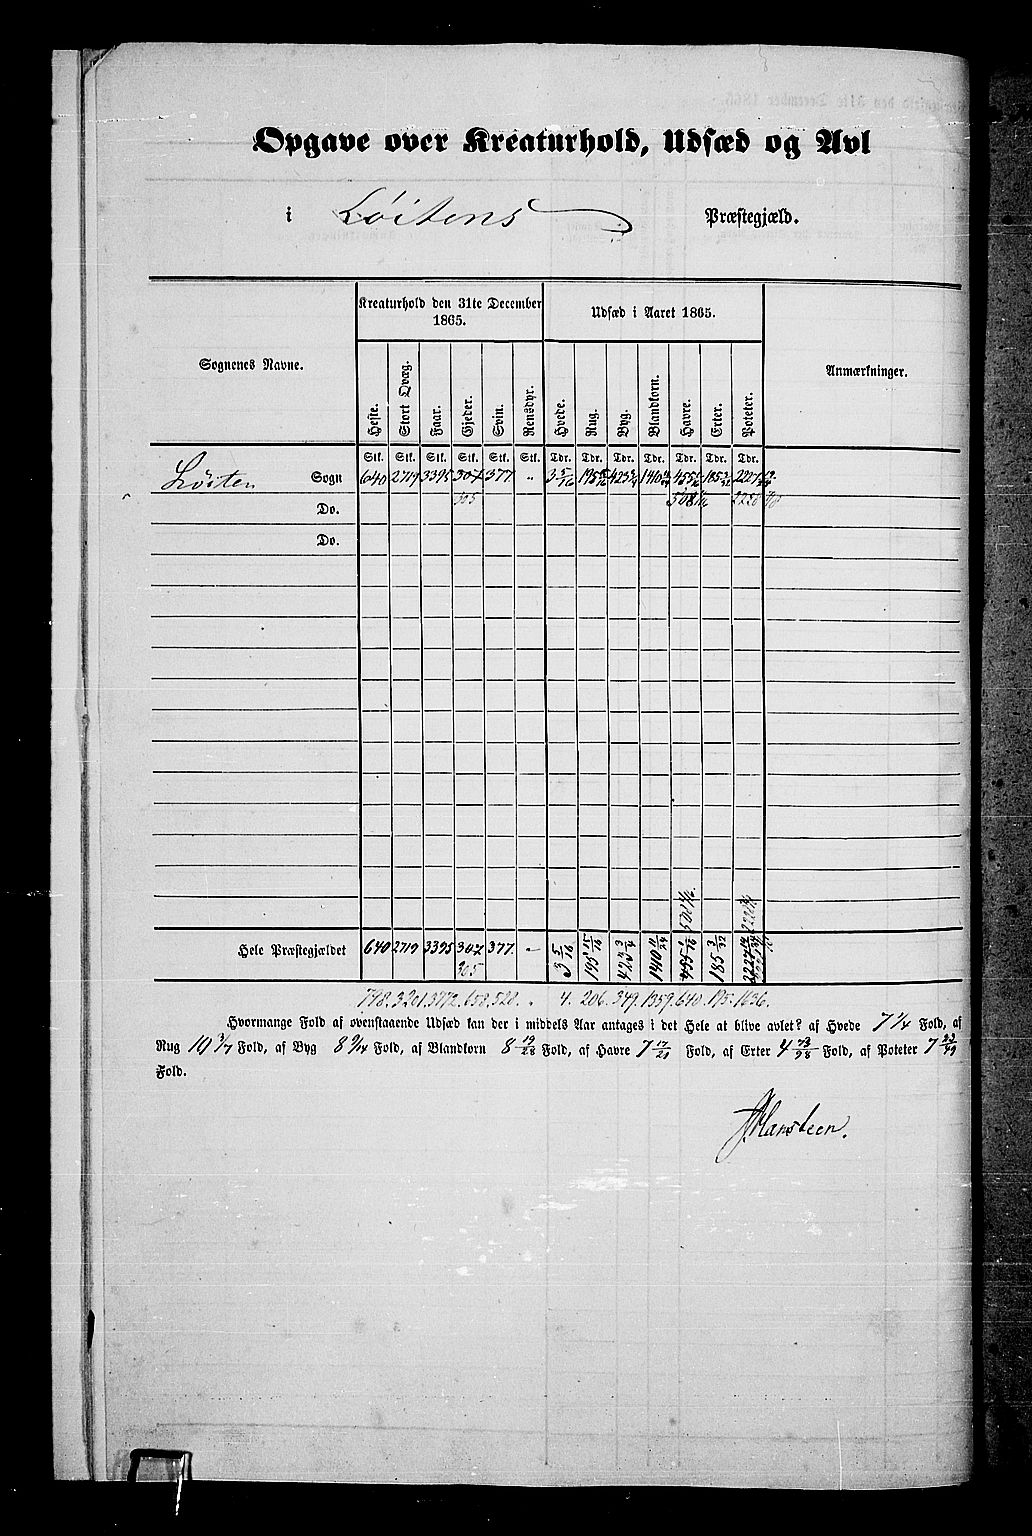 Opgave over Kreaturhold, Udsæd og Avl
i Löitens Præstegjæld.
Sognenes Navne.
Kreaturhold den 31te December 1865.
Udsæd i Aaret 1865.
Anmærkninger.
Heste. Stort Qvæg. Faar. Gjeder. Sviin. Rensdyr. Hvede. Rug. Byg. Blandkorn. Havre. Erter. Poteter.
Stk. Stk. Stk. Stk. Stk. Stk. Tdr. Tdr. Tdr. Tdr. Tdr. Tdr. Tdr.
Löiten Sogn 640 2719 3395 307 377 " 3 5/16 195 15/16 423 3/4 1410 11/24
305 508 1/16
Do.
Do.
Hele Præstegjældet 640 2719 3395 307 377 " 3 5/16 195 15/16 423 3/4 1410 11/24 185 3/32
305
798. 3201. 3772. 652. 520. " 4. 206. 349. 1359. 640. 195. 1636.
Hvormange Fold af ovenstaaende Udsæd kan der i middels Aar antages i det Hele at blive avlet? af Hvede 7 1/4 Fold, af
Rug 10 3/7 Fold, af Byg 8 9/14 Fold, af Blandkorn 8 19/28 Fold, af Havre 7 17/21 Fold, af Erter 4 73/98 Fold, af Poteter 7 23/49
Fold.
Hansteen.